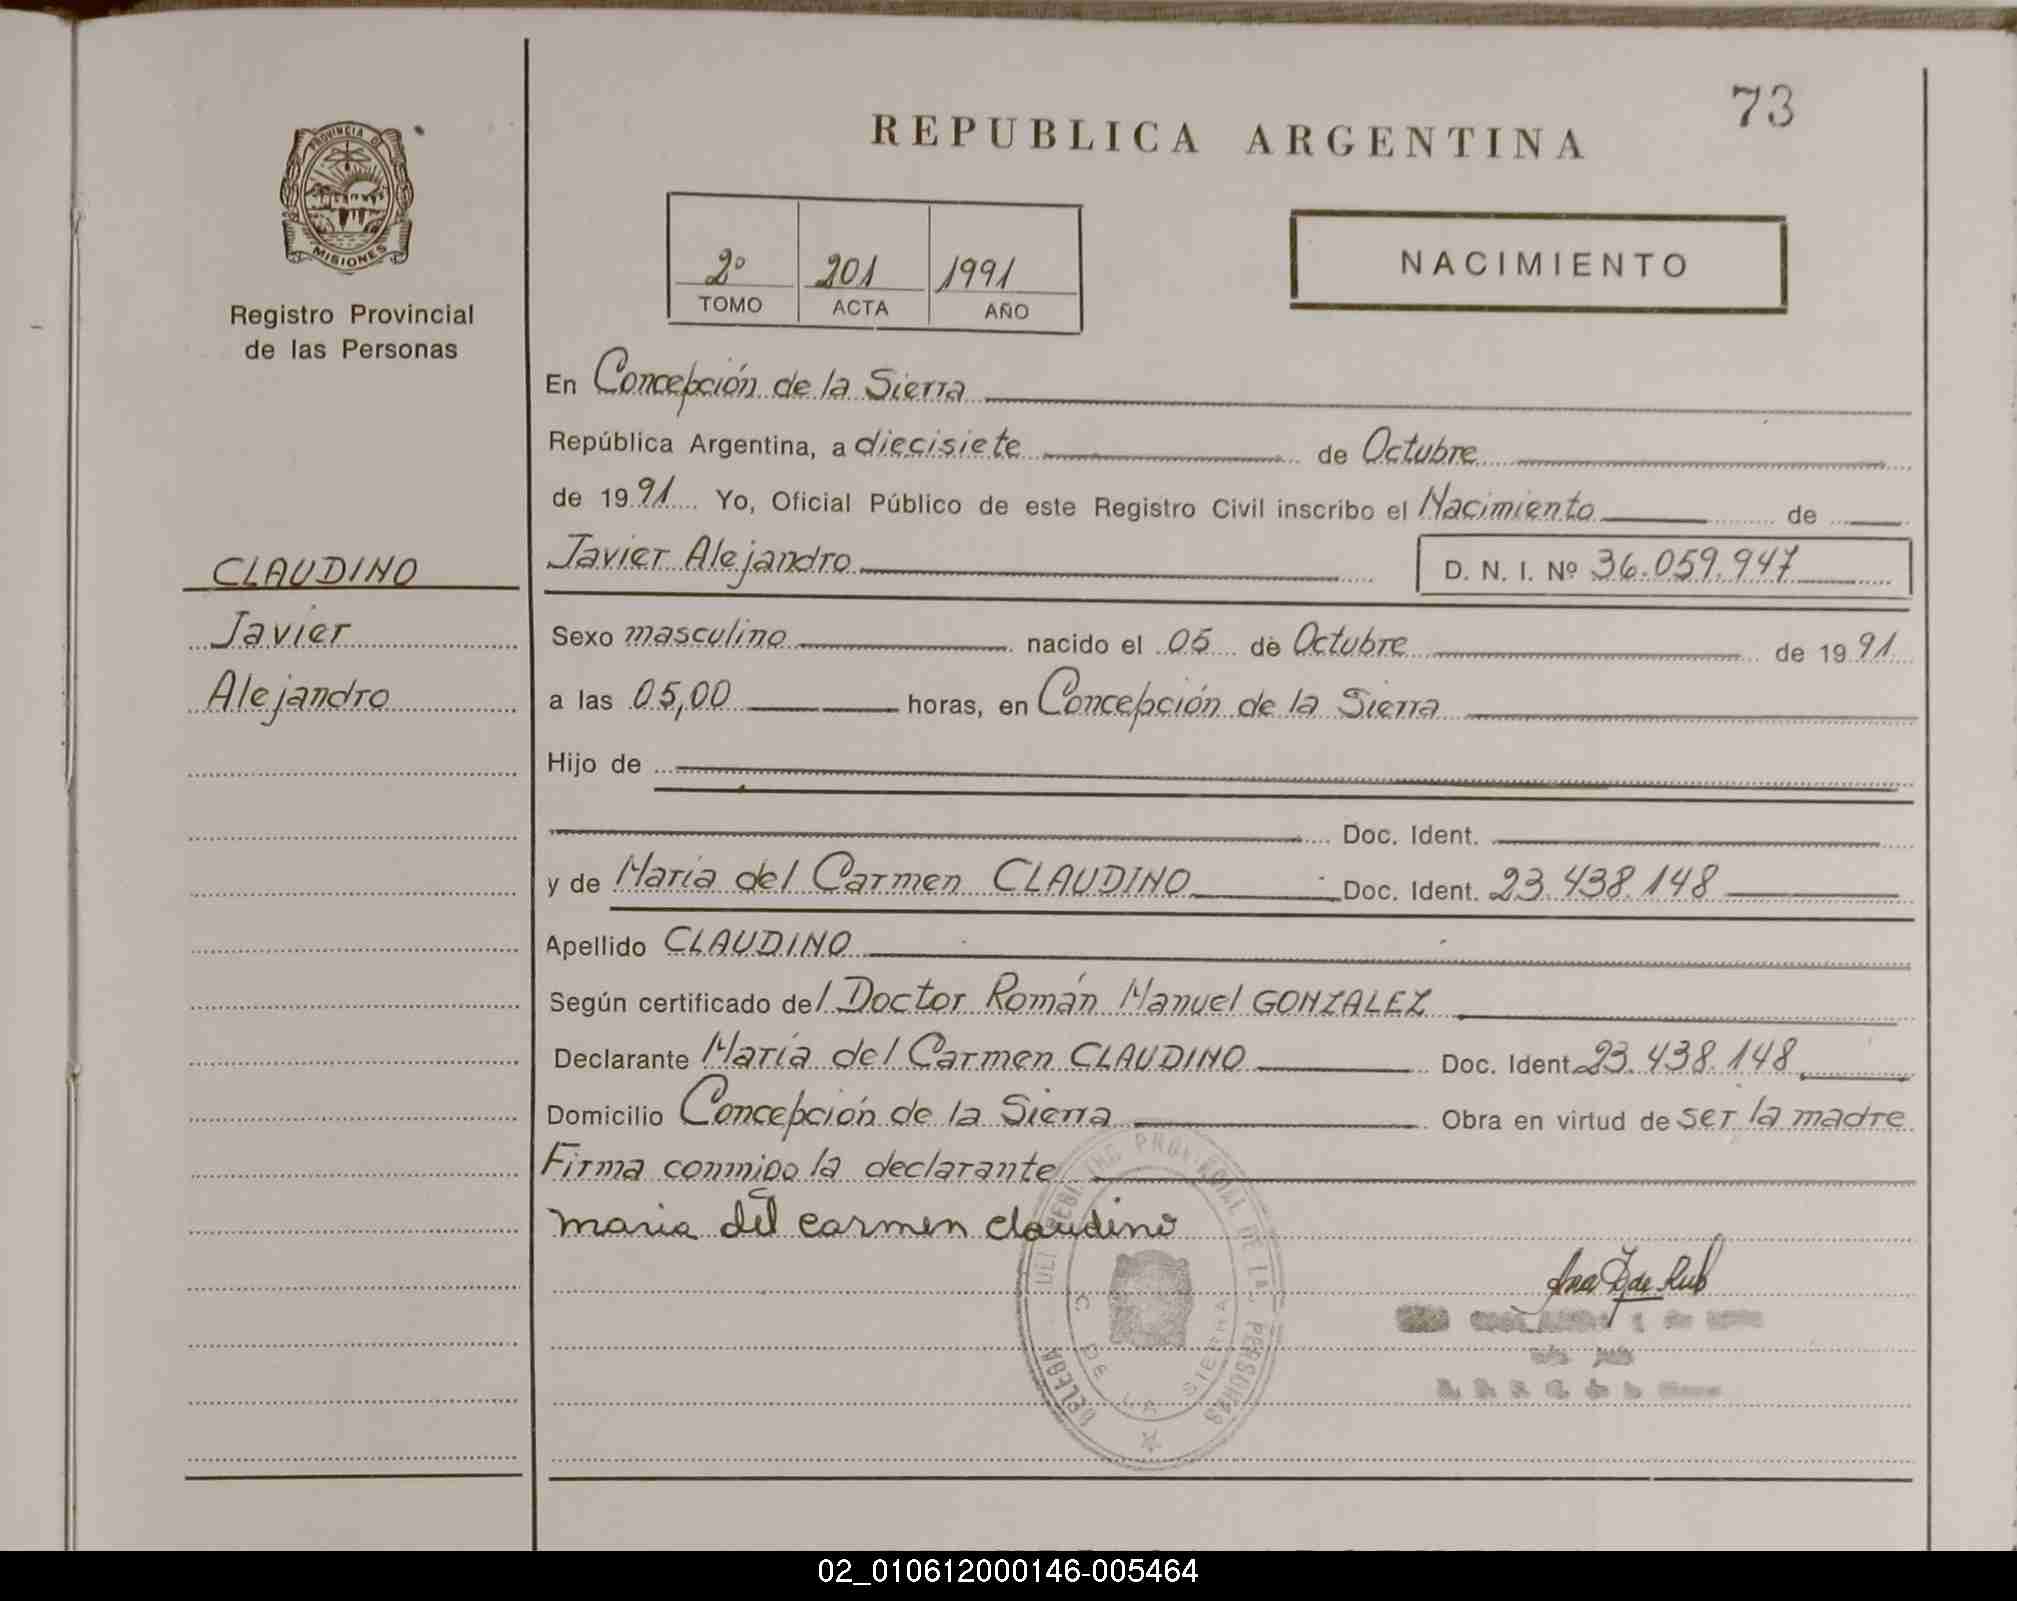 73
REPUBLICA ARGENTINA
PROVINCIA DE
MISIONES
Registro Provincial
de las Personas
2º 201 1991
TOMO ACTA AÑO
NACIMIENTO
En Concepción de la Sierra
República Argentina, a diecisiete de Octubre
de 1991 Yo, Oficial Público de este Registro Civil inscribo el Nacimiento de
CLAUDINO
Javier
Alejandro
Javier Alejandro D. N. I. Nº 36.059.947
Sexo masculino nacido el 05 de Octubre de 1991
a las 05,00 horas, en Concepción de la Sierra
Hijo de
Doc. Ident.
y de María del Carmen CLAUDINO Doc. Ident. 23.438.148
Apellido CLAUDINO
Según certificado del Doctor Román Manuel GONZALEZ
Declarante María del Carmen CLAUDINO Doc. Ident. 23.438.148
Domicilio Concepción de la Sierra Obra en virtud de ser la madre
Firma conmigo la declarante
maria del carmen claudino
C. DE LA SIERRA
02_010612000146-005464